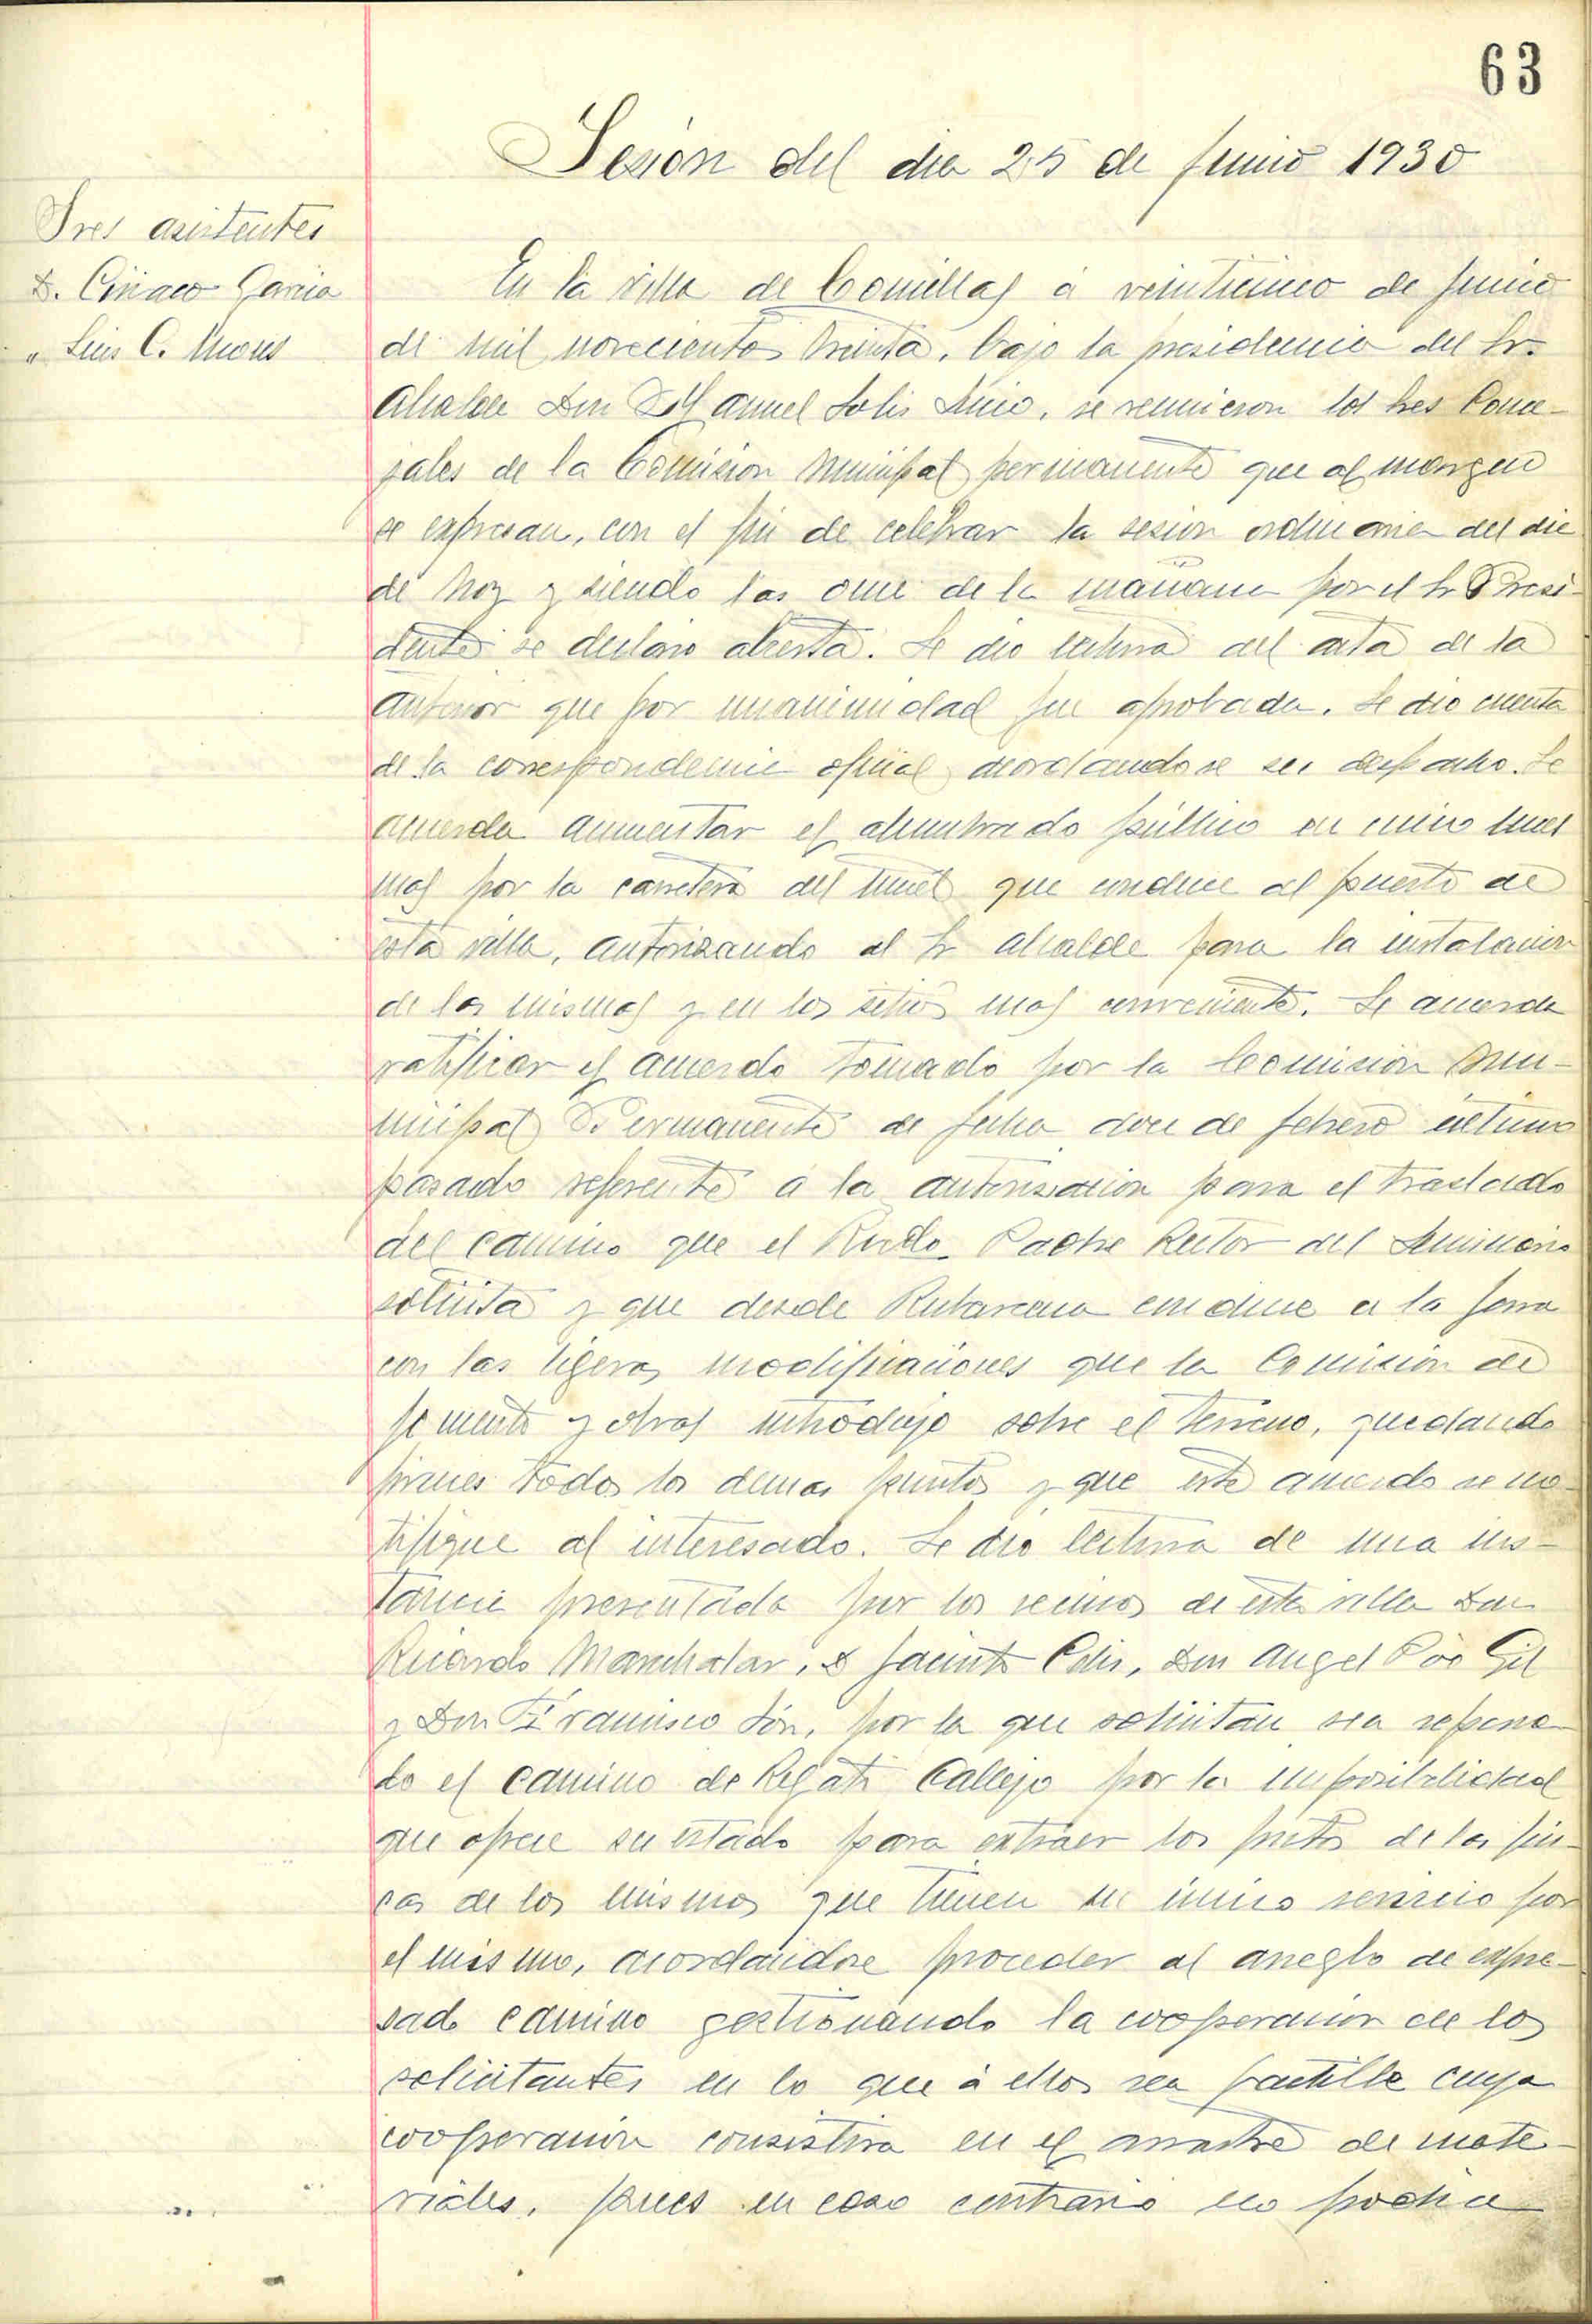 63
Sesión del dia 25 de Junio 1930
Sres asistentes
D. Ciriaco Garcia
" Luis C.
En la villa de Comillas á veinticinco de Junio
de mil novecientos treinta, bajo la presidencia del Sr.
Alcalde Don Manuel Solis, se reunieron los Sres Conce-
jales de la Comision Municipal permanente que al margen
se expresan, con el fin de celebrar la sesion ordinaria del dia
de hoy y siendo las once de la mañana por el Sr Presi-
dente se declaro abierta. Se dio lectura del acta de la
anterior que por unanimidad fue aprobada. Se dio cuenta
de la correspondencia oficial acordandose su despacho. Se
acuerda aumentar el alumbrado público en cinco luces
mas por la carretera del tunel que conduce al puerto de
esta villa, autorizando al Sr alcalde para la instalacion
de las mismas y en los sitios mas conveniente. Se acuerda
ratificar el acuerdo tomado por la Comision Mu-
nicipal Permanente de fecha doce de febrero ultimo
pasado referente á la autorización para el traslado
del camino que el Rvdo. Padre Rector del Seminario
solicita y que desde Rubarcena conduce a la
con las ligeras modificaciones que la Comision de
fomento y obras introdujo sobre el terreno, quedando
firmes todos los demas puntos y que este acuerdo se no-
tifique al interesado. Se dio lectura de una ins-
tancia presentada por los vecinos de esta villa Don
Ricardo Marchalar, D Jacinto, Don Angel Gil
y Don Francisco, por la que solicitan sea repara-
do el camino de Callejo por la imposibilidad
que ofrece su estado para extraer los frutos de las fin-
cas de los mismos que tienen su único servicio por
el mismo, acordandose proceder al arreglo de expre-
sado camino gestionando la cooperacion de los
solicitantes en lo que á ellos sea factible cuya
cooperación consistira en el arrastre de mate-
riales, pues en caso contrario no podria